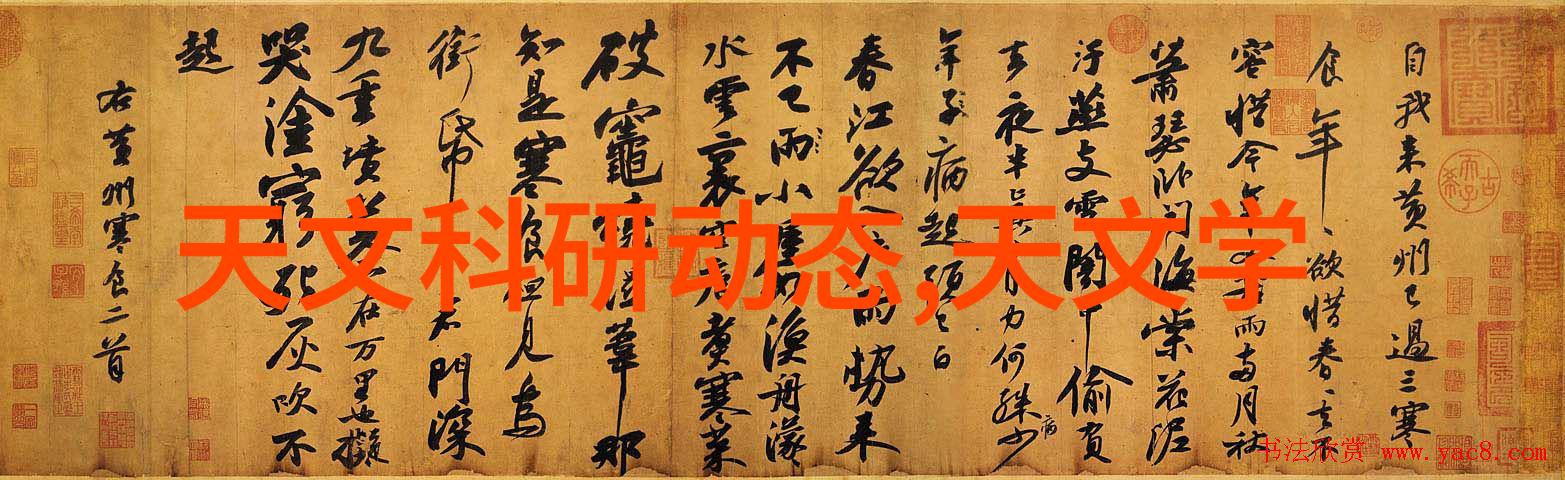 自我来黄州已過三寒
食年、欲惜春、去不
容惜今年又苦雨兩月秋
蕭瑟卧聞海棠花泥
汙燕支雪闇中偷負
去夜半真有力何殊少
病
年子病起頭已白
春江欲入户雨勢来
不已雨小屋如漁舟濛
水雲裏空庖煮寒菜
破竈燒溼葦那
知是寒食但見烏
銜帋君門深
九重墳墓在万里也擬
哭塗窮死灰吹不
起
右黄州寒食二首
天文科研动态,天文学
书法欣赏
www.yac8.com